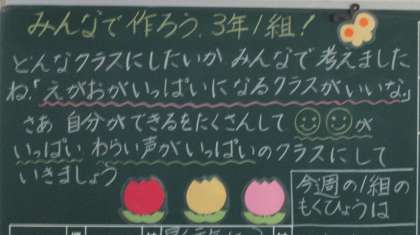 みんなで作ろう、3年1組！
どんなクラスにしたいか みんなで考えました
ね。「えがおがいっぱいになるクラスがいいな。」
さあ 自分ができるをたくさんして が
いっぱい わらい声がいっぱいのクラスにして
いきましょう
今週の1組の
もくひょうは